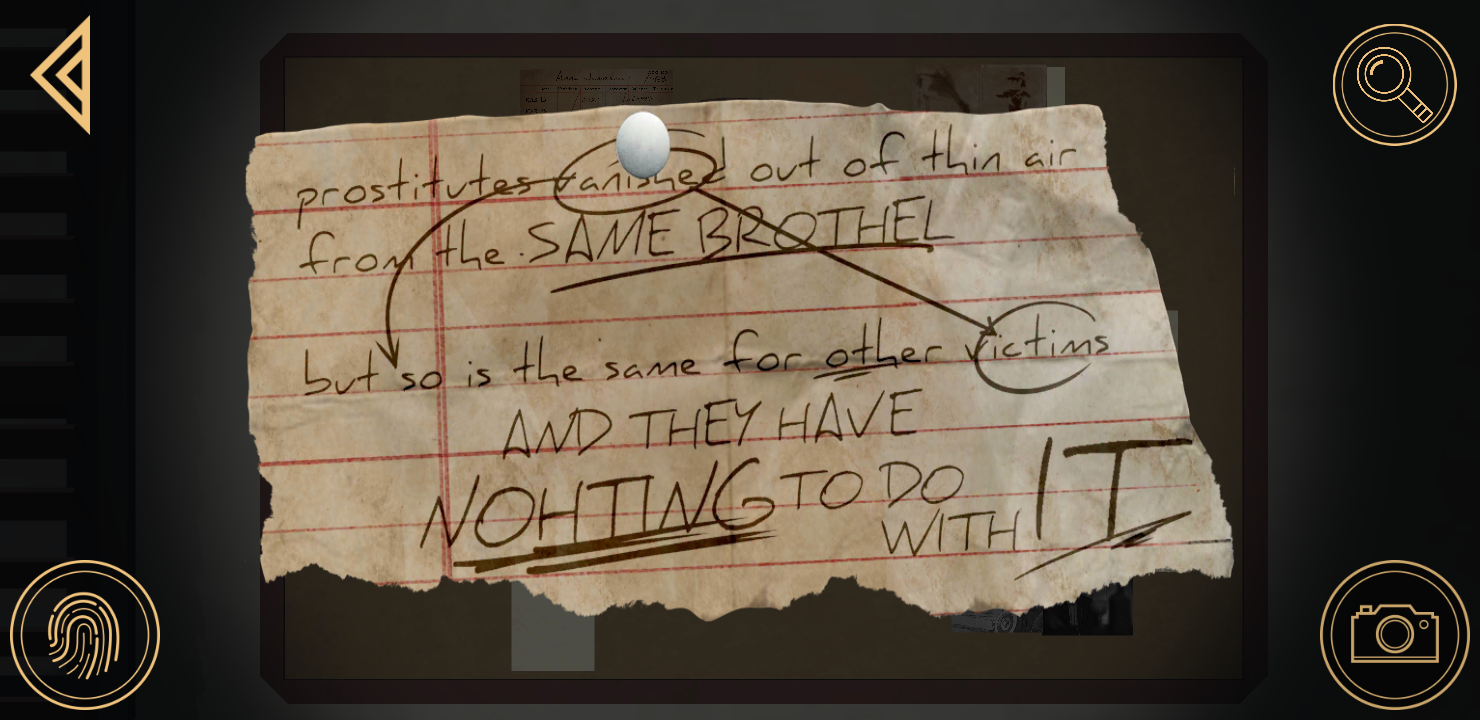 prostitutes vanished out of thin air
from the SAME BROTHEL
but so is the same for other victims
AND THEY HAVE
NOHTING TO DO
WITH IT